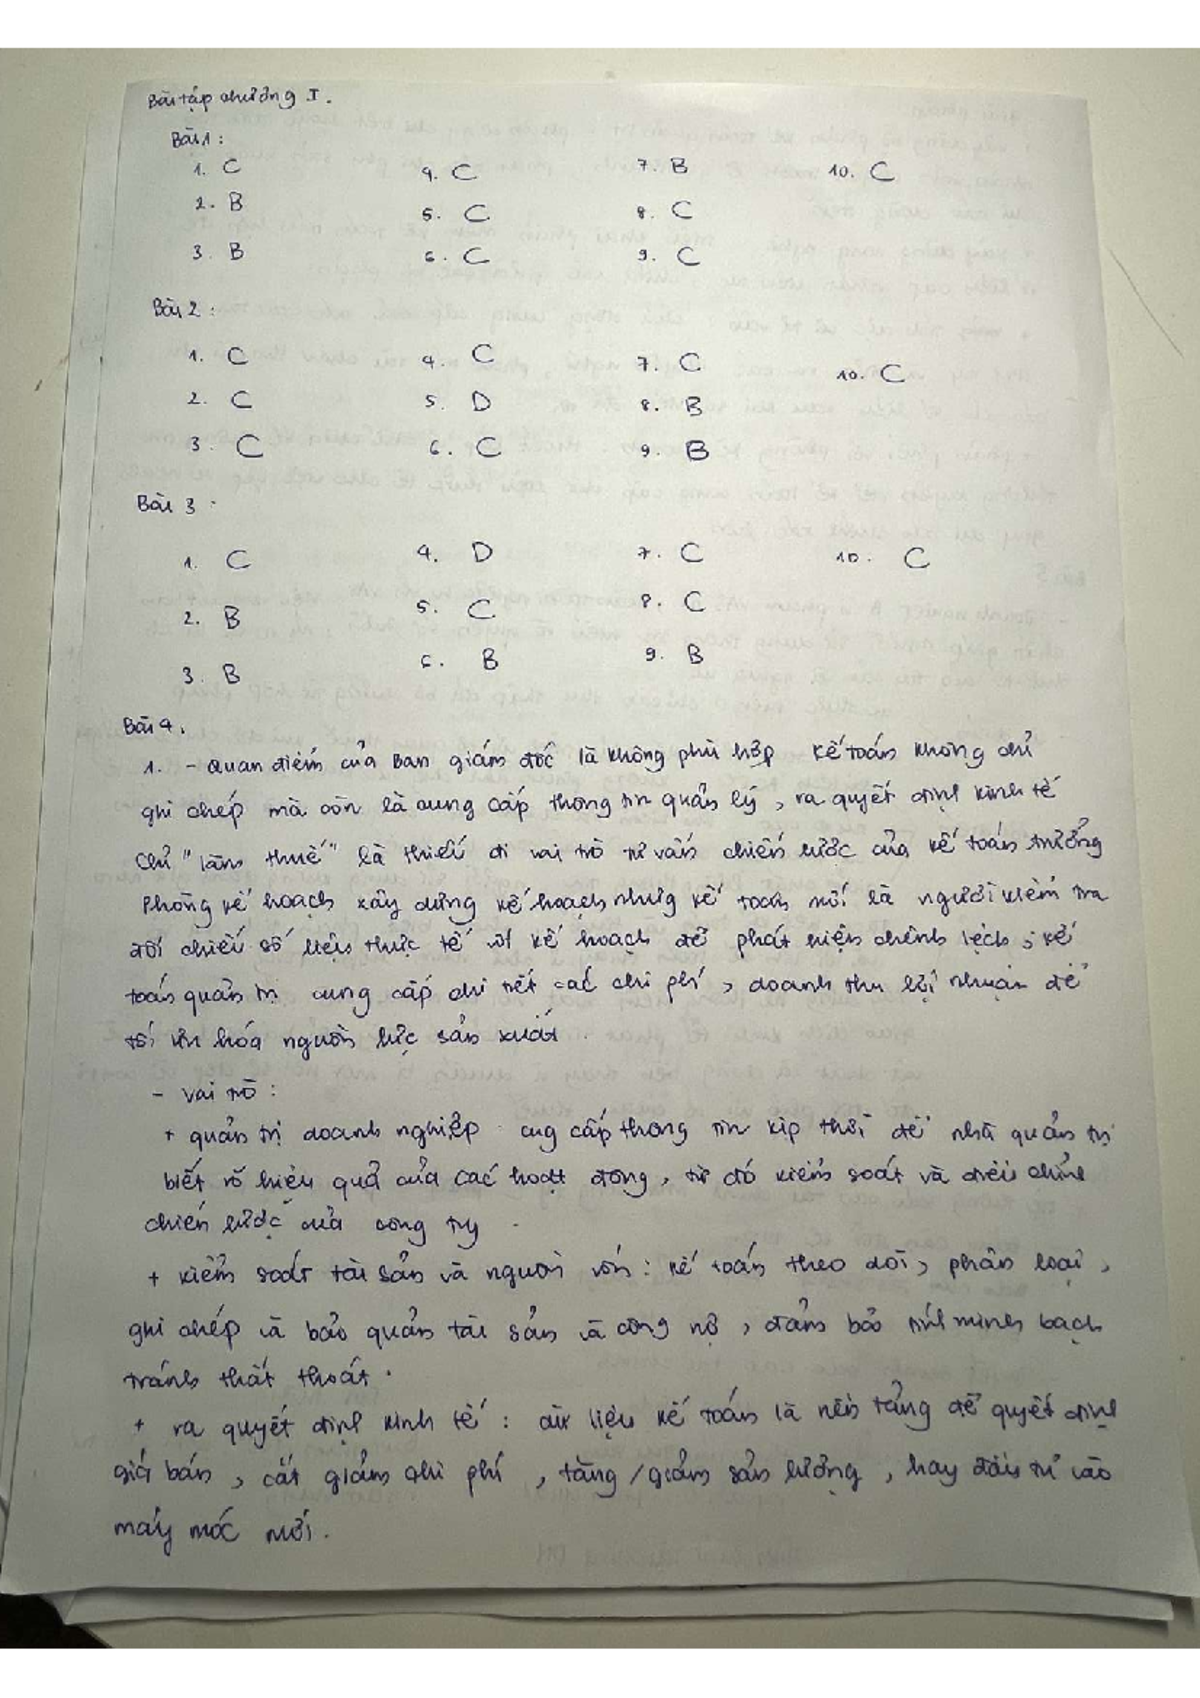 Bài tập chương I.
Bài 1:
1. C 4. C 7. B 10. C
2. B 5. C 8. C
3. B 6. C 9. C
Bài 2:
1. C 4. C 7. C 10. C
2. C 5. D 8. B
3. C 6. C 9. B
Bài 3
1. C 4. D 7. C 10. C
2. B 5. C 8. C
3. B 6. B 9. B
Bài 4.
1. - Quan điểm của Ban giám đốc là không phù hợp kế toán không chỉ
ghi chép mà còn là cung cấp thông tin quản lý, ra quyết định kinh tế
chỉ "làm thuế" là thiếu đi vai trò tư vấn chiến lược của kế toán trưởng
Phòng kế hoạch xây dựng kế hoạch nhưng kế toán mới là người kiểm tra
đối chiếu số liệu thực tế với kế hoạch để phát hiện chênh lệch; kế
toán quản trị cung cấp chi tiết các chi phí, doanh thu lợi nhuận để
tối ưu hóa nguồn lực sản xuất.
- vai trò:
+ quản trị doanh nghiệp cug cấp thong tin kịp thời để nhà quản trị
biết rõ hiệu quả của các hoạt động, từ đó kiểm soát và điều chỉnh
chiến lược của công ty.
+ kiểm soát tài sản và nguồn vốn: kế toán theo dõi, phân loại,
ghi chép và bảo quản tài sản và công nợ, đảm bảo tính minh bạch
tránh thất thoát.
+ ra quyết định kinh tế: dữ liệu kế toán là nền tảng để quyết định
giá bán, cắt giảm chi phí, tăng/giảm sản lượng, hay đầu tư vào
máy móc mới.